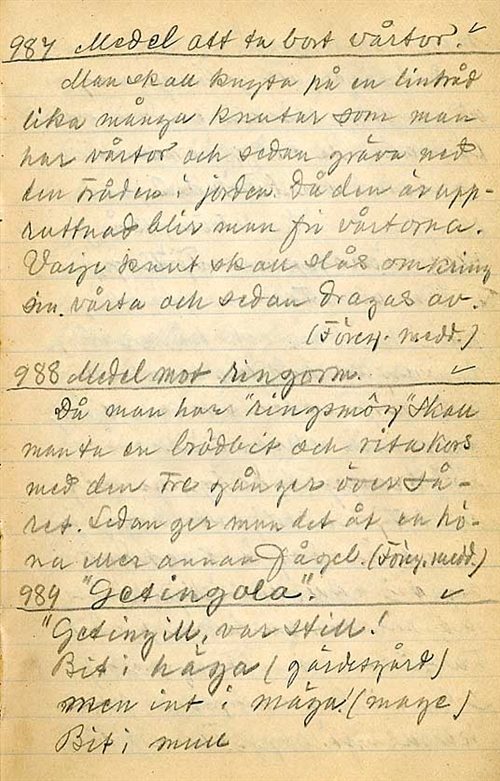 987 Medel att ta bort vårtor. ✓
Man skall knyta på en lintråd
lika många knutar som man
har vårtor och sedan gräva ned
den tråden i jorden. Då den är upp-
ruttnad blir man fri vårtorna.
Varje knut skall slås omkring
sin vårta och sedan dragas av.
(Föreg. medd.)
988 Medel mot ringorm. ✓
Då man har "ringsmörj" skall
man ta en brödbit och rita kors
med den tre gånger över så-
ret. Sedan ger man det åt en hö-
na eller annan fågel. (Föreg. medd.)
989 "Getingola". ✓
"Getingill, var still!
Bit i häga (gärdesgård)
men int i måga! (mage)
Bit i mull